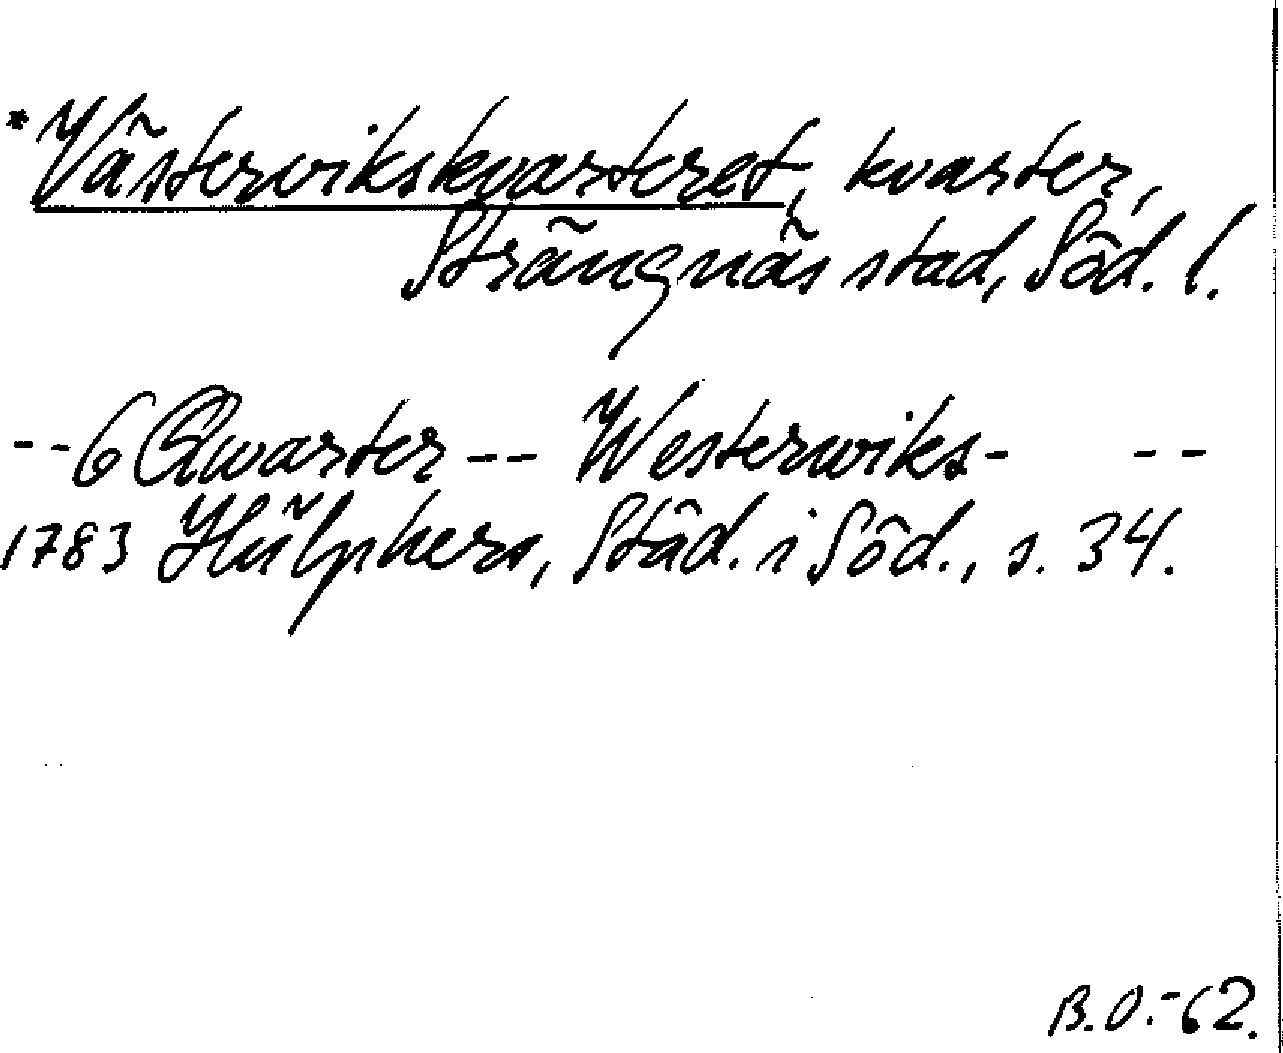 *Västervikskvarteret, kvarter,
Strängnäs stad, Söd. l.
--6 Qwarter -- Westerwiks- --
1783 Hülphers, Städ. i Söd., s. 34.
B.O.-62.